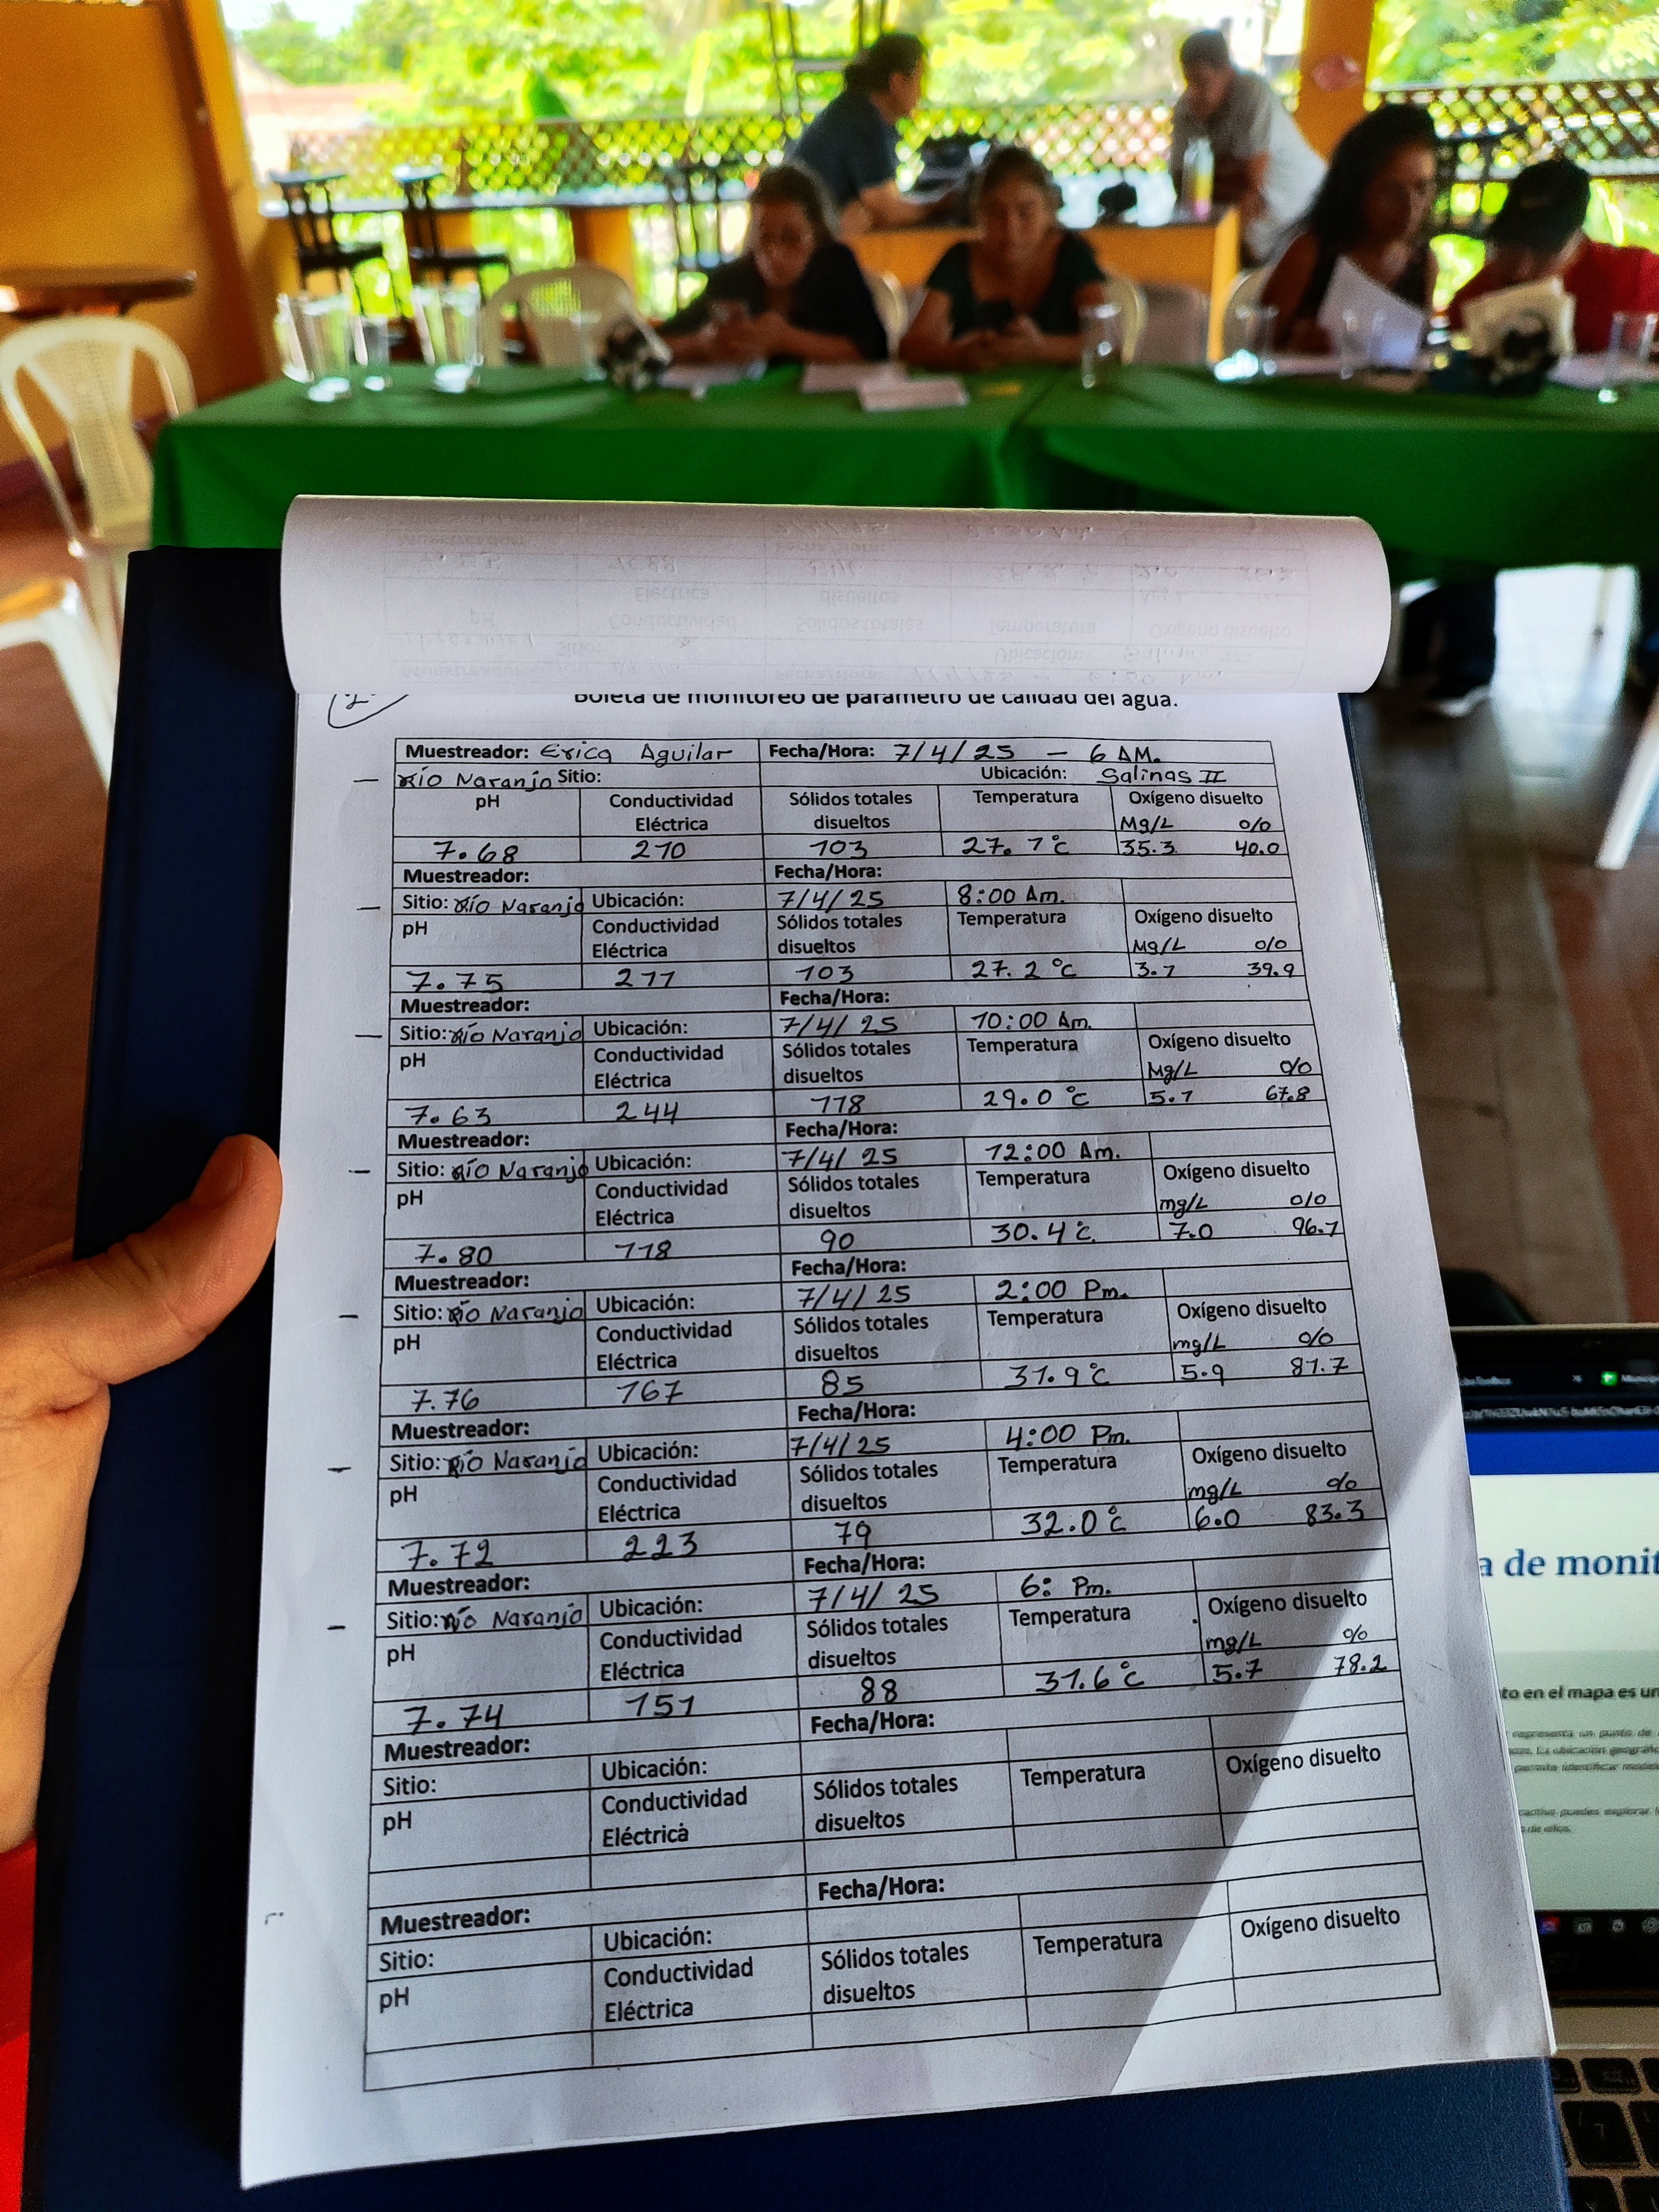 Boleta de monitoreo de parámetro de calidad del agua.
Muestreador: Erica Aguilar Fecha/Hora: 7/4/25 - 6 AM.
Río Naranjo Sitio: Ubicación: Salinas II
pH Conductividad Eléctrica Sólidos totales disueltos Temperatura Oxígeno disuelto
Mg/L %
7.68 210 103 27.1°c 35.3 40.0
Muestreador: Fecha/Hora:
Sitio: Río Naranjo Ubicación: 7/4/25 8:00 Am.
pH Conductividad Eléctrica Sólidos totales disueltos Temperatura Oxígeno disuelto
Mg/L %
7.75 211 103 27.2°c 3.1 39.9
Muestreador: Fecha/Hora:
Sitio: Río Naranjo Ubicación: 7/4/25 10:00 Am.
pH Conductividad Eléctrica Sólidos totales disueltos Temperatura Oxígeno disuelto
Mg/L %
7.63 244 118 29.0°c 5.1 67.8
Muestreador: Fecha/Hora:
Sitio: Río Naranjo Ubicación: 7/4/25 12:00 Am.
pH Conductividad Eléctrica Sólidos totales disueltos Temperatura Oxígeno disuelto
mg/L %
7.80 118 90 30.4°c 7.0 96.1
Muestreador: Fecha/Hora:
Sitio: Río Naranjo Ubicación: 7/4/25 2:00 Pm.
pH Conductividad Eléctrica Sólidos totales disueltos Temperatura Oxígeno disuelto
mg/L %
7.76 167 85 31.9°c 5.9 81.7
Muestreador: Fecha/Hora:
Sitio: Río Naranjo Ubicación: 7/4/25 4:00 Pm.
pH Conductividad Eléctrica Sólidos totales disueltos Temperatura Oxígeno disuelto
mg/L %
7.72 223 79 32.0°c 6.0 83.3
Muestreador: Fecha/Hora:
Sitio: Río Naranjo Ubicación: 7/4/25 6: Pm.
pH Conductividad Eléctrica Sólidos totales disueltos Temperatura Oxígeno disuelto
mg/L %
7.74 151 88 31.6°c 5.7 78.2
Muestreador: Fecha/Hora:
Sitio: Ubicación:
pH Conductividad Eléctrica Sólidos totales disueltos Temperatura Oxígeno disuelto
Muestreador: Fecha/Hora:
Sitio: Ubicación:
pH Conductividad Eléctrica Sólidos totales disueltos Temperatura Oxígeno disuelto
a de monit
to en el mapa es un